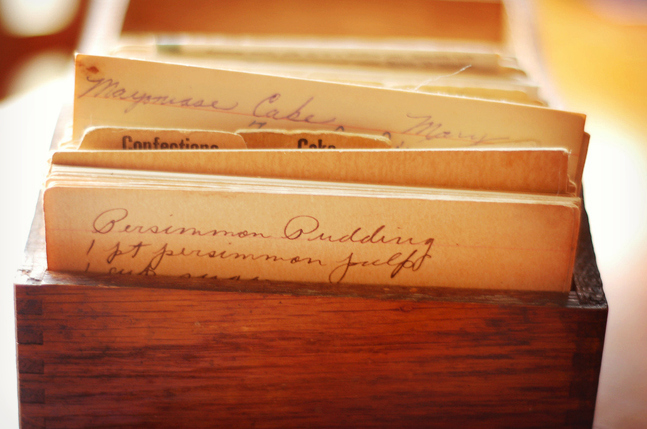 Mayonaise Cake Mary
Confections Cake
Persimmon Pudding
1 pt persimmon pulp
1 cup sugar